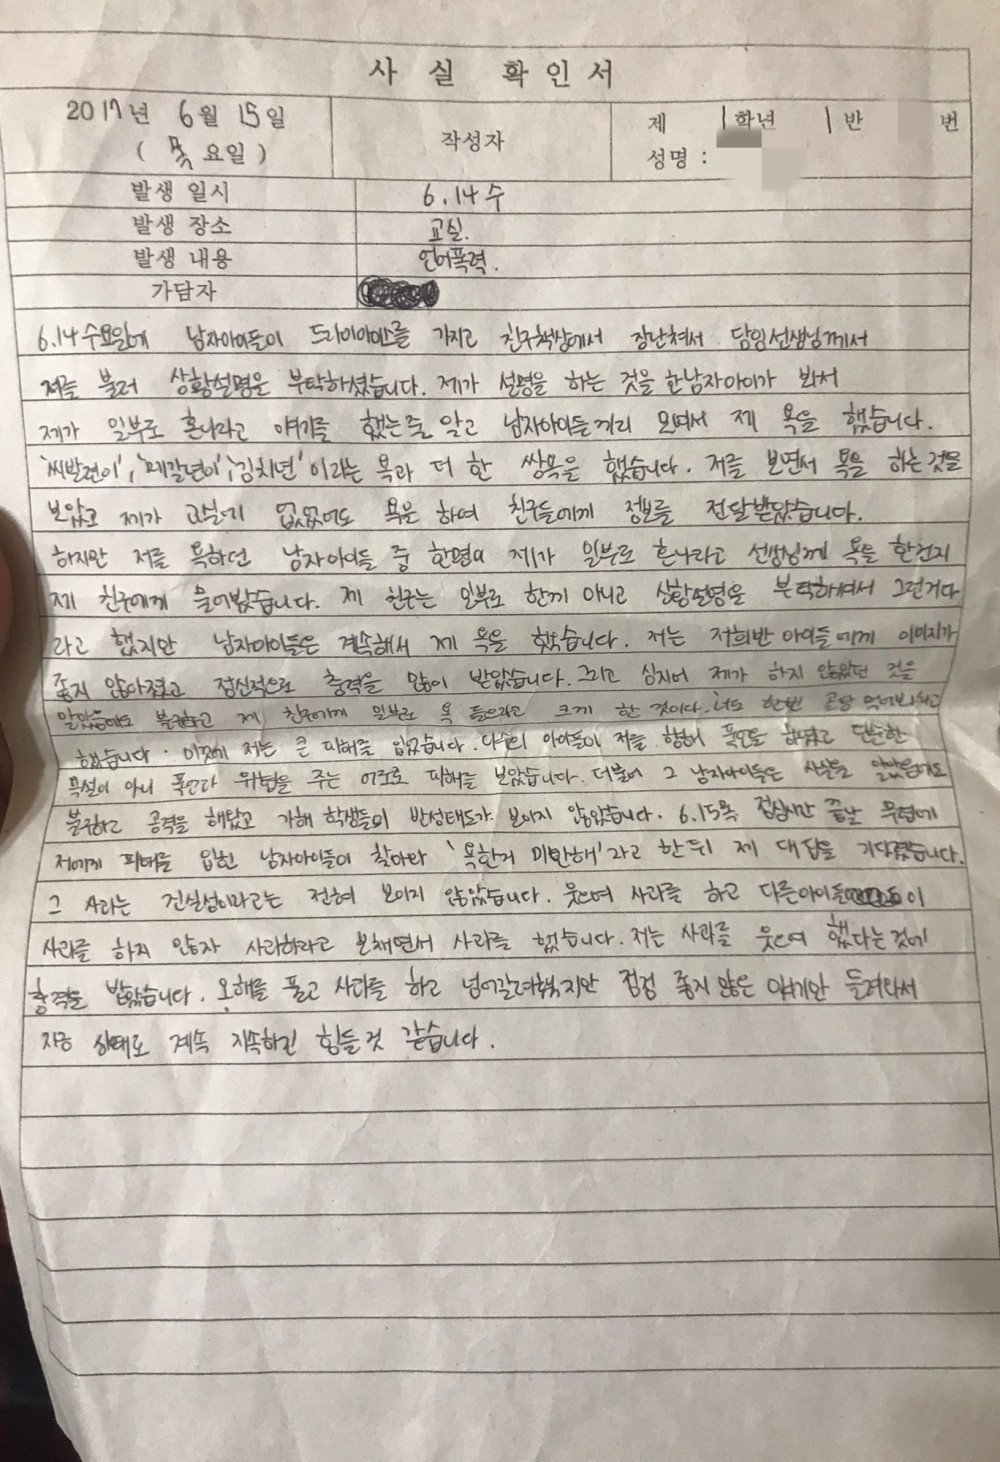 사 실 확 인 서
2017년 6월 15일
( 목요일 )
작성자
제 1학년 1반 번
성명 :
발생 일시 6.14 수
발생 장소 교실.
발생 내용 언어폭력.
가담자
6.14 수요일에 남자아이들이 드라이아이스를 가지고 친구책상에서 장난쳐서 담임선생님께서
저를 불러 상황설명을 부탁하셨습니다. 제가 설명을 하는 것을 한남자아이가 봐서
제가 일부로 혼나라고 얘기를 했는줄 알고 남자아이들끼리 모여서 제 욕을 했습니다.
'씨발련이', '메갈년이', '김치년' 이라는 욕과 더 한 쌍욕을 했습니다. 저를 보면서 욕을 하는것을
보았고 제가 교실에 없었어도 욕을 하여 친구들에게 정보를 전달받았습니다.
하지만 저를 욕하던 남자아이들 중 한명이 제가 일부로 혼나라고 선생님께 욕을 한건지
제 친구에게 물어봤습니다. 제 친구는 일부로 한게 아니고 상황설명을 부탁하셔서 그런거다
라고 했지만 남자아이들은 계속해서 제 욕을 했습니다. 저는 저희반 아이들에게 이미지가
좋지 않아졌고 정신적으로 충격을 많이 받았습니다. 그리고 심지어 제가 하지 않았던 것을
알았음에도 불구하고 제 친구에게 일부로 욕 들으라고 크게 한 것이다. 너도 한번 먹어봐라고
했습니다. 이것에 저는 큰 피해를 입었습니다. 다수의 아이들이 저를 향해 폭언을 하였고 단순한
욕설이 아니 폭언과 위협을 주는 어조로 피해를 보았습니다. 더불어 그 남자아이들은 사실을 알았음에도
불구하고 공격을 해왔고 가해 학생들의 반성태도가 보이지 않았습니다. 6.15목 점심시간 끝날 무렵에
저에게 피해를 입힌 남자아이들이 찾아와 '욕한거 미안해'라고 한뒤 제 대답을 기다렸습니다.
그 사과는 진실성이라고는 전혀 보이지 않았습니다. 웃으며 사과를 하고 다른아이들이
사과를 하지 않자 사과하라고 보채면서 사과를 했습니다. 저는 사과를 웃으며 했다는것에
충격을 받았습니다. 오해를 풀고 사과를 하고 넘어갈려했지만 점점 좋지않은 얘기만 들려와서
지금 상태로 계속 지속하긴 힘들것 같습니다.